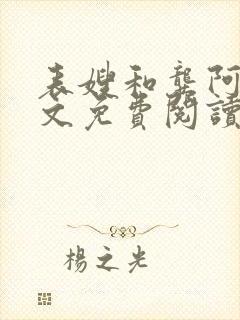 表嫂和龔阿
文免費閱讀
楊之光